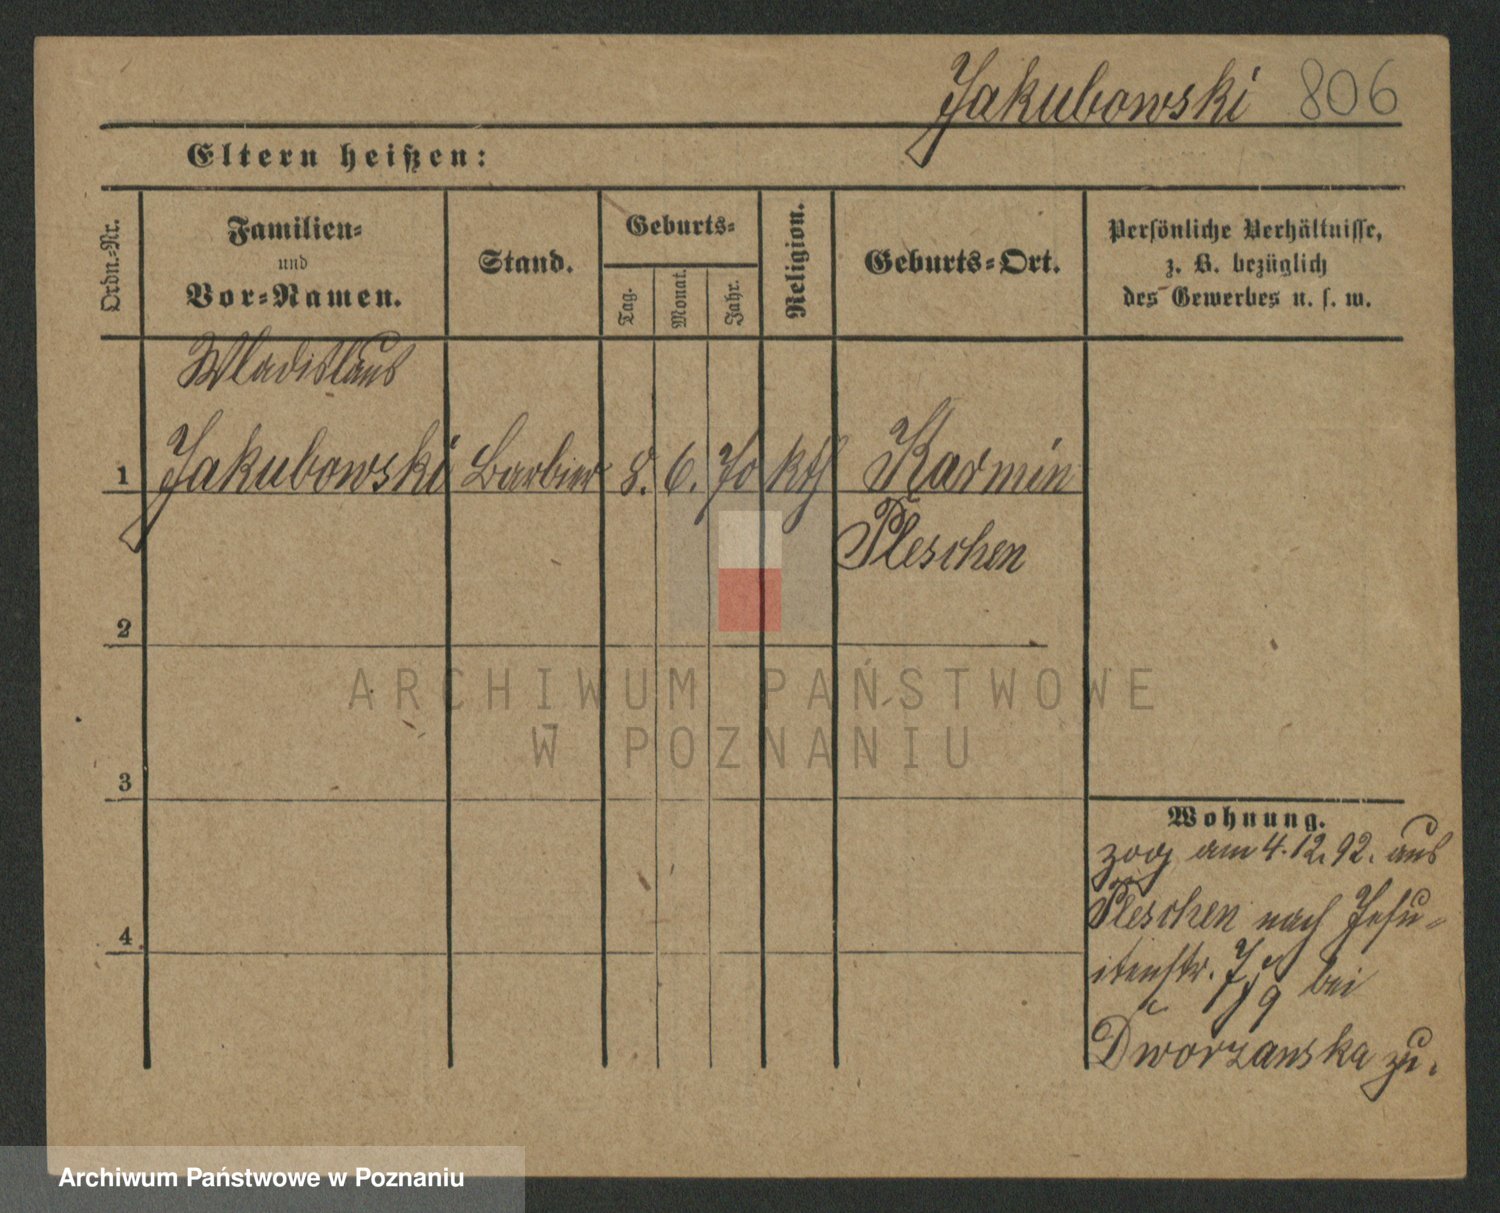 Jakubowski 806
Eltern heißen:
Ordn.-Nr.
Familien-
und
Vor-Namen.
Stand.
Geburts-
Tag.
Monat.
Jahr.
Religion.
Geburts-Ort.
Persönliche Verhältnisse,
z. B. bezüglich
des Gewerbes u. s. w.
Wladislaus
1 Jakubowski Barbier 8. 6. 70 kth Karmin
Pleschen
2
3
4
Wohnung.
zog am 4.12.92. aus
Pleschen nach Jesu-
itenstr. bei
Dworzanska zu.
ARCHIWUM PAŃSTWOWE
W POZNANIU
Archiwum Państwowe w Poznaniu